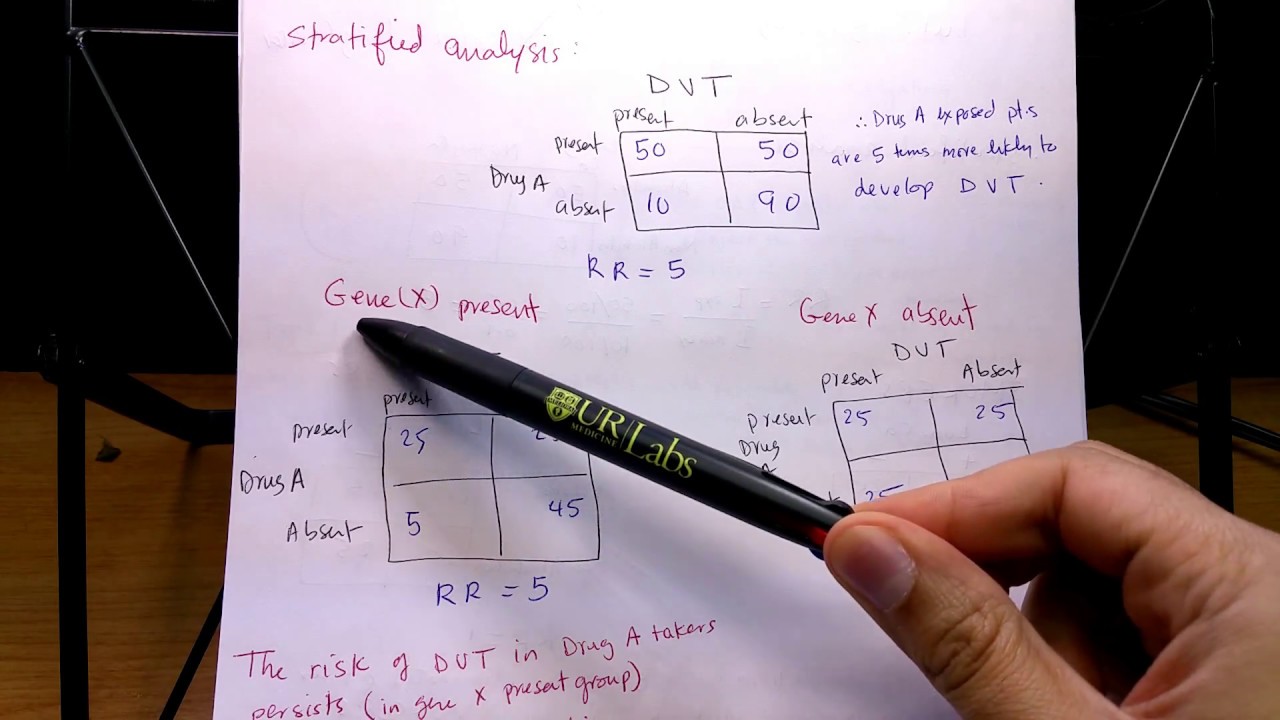 Stratified analysis:
DVT
present absent
present 50 50
Drug A
absent 10 90
RR = 5
∴ Drug A exposed pt.s
are 5 tems more likely to
develop DVT.
Gene(X) present
present
present 25
Drug A
Absent 5 45
RR = 5
Gene X absent
DVT
present Absent
present 25 25
Drug
A
25
UR Labs
MEDICINE
The risk of DVT in Drug A takers
persists (in gene X present group)